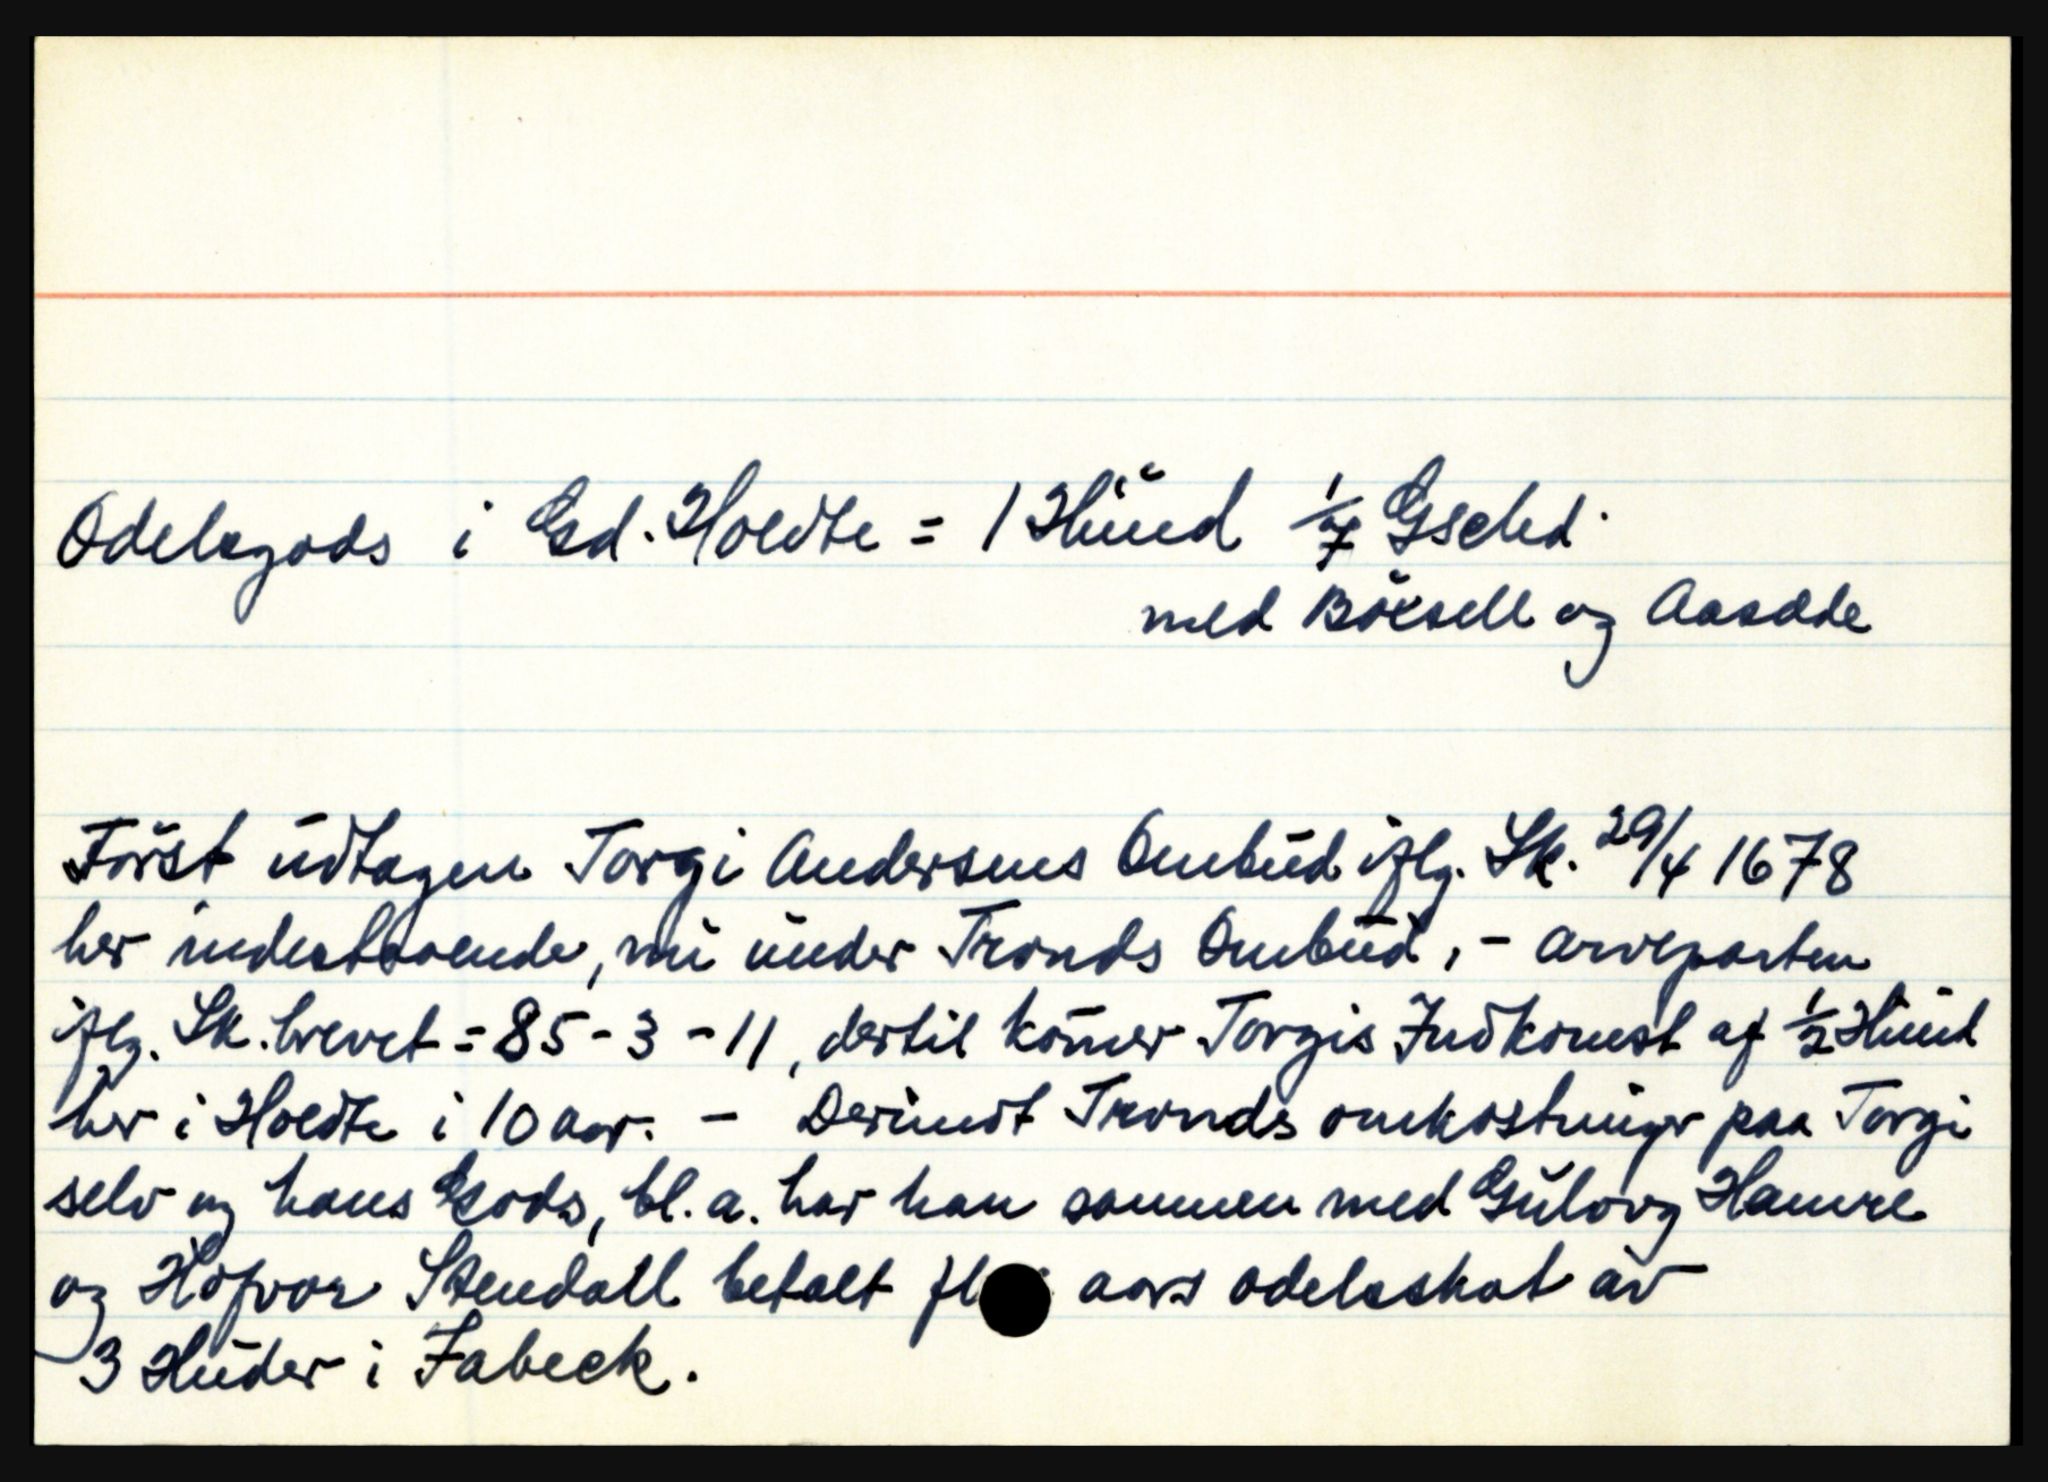 Odelsgods i Gsd. Holdte = 1 Hŭŭd 1/7 Gschd.
med Böesell og Aasæde
Först ŭdtagen Torgi Andersens Ombŭd iflg. Sk. 29/4 1678
her indestaaende, nŭ ŭnder Tronds Ombŭd, - arveparten
iflg. Sk.brevet = 85-3-11, dertil kom̄er Torgis Indkomst af 1/2 Hŭŭd
her i Holdte i 10 aar. - Derimot Tronds omkostninger paa Torgi
selv og hans Gods, bl.a. har han sammen med Gŭlovg Hamre
og Höfvor Stendall betalt aars odelsskat av
3 Hŭder i Fabeck.